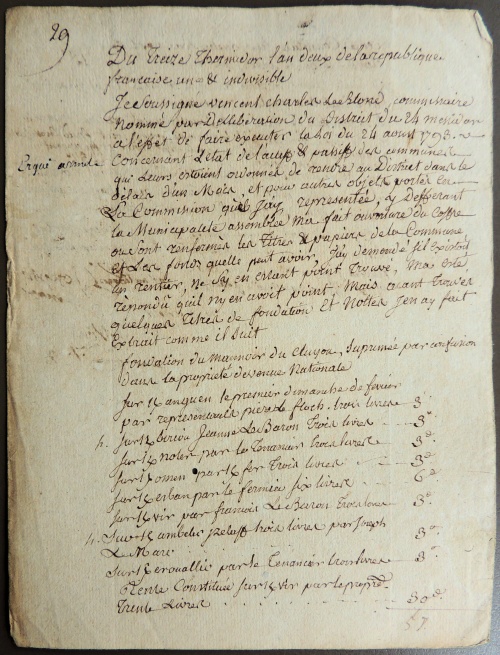 29
Du treize thermidor l'an deux de la republique
francaise une & indivisible
Je Soussigné vencent charles Le Blond, commissaire
Nommé par Dellibération du District du 24 messidor
a l'effet de faire executer la Loi du 24 aoust 1793
Ergué armel
Concernant L'etat de l'actif & passif des communes
qui Leurs etoient ordonnés de rendre au District dans le
délais d'un Mois, et pour autres objets portés en
La Commission que J'ay représentée, y Defferant
la Municipalité assemblée m'a fait ouverture du Coffre
ou Sont conferencés les Titres & papiers de la Commune
et Les fonds quelle peut avoir, J'ay demandé s'il Existoit
un rentier, ne s'y en etant point trouvé, m'a eté
répondu qu'il n'y en avoit point, Mais ayant trouvés
quelques Titres de fondation et Nottes J'en ay fait
Extrait comme il Suit
fondation du mannoir du cluyou, suprimée par confusion
dans la propriété devenue Nationale
Sur K anguen le premier dimanche de fevrier
par representants pierre Le floch, trois livres 3
h. Sur K Jeanne Le Baron Trois Livres 3
Sur K noter par la Tenancier trois livres 3
Sur K omen par K fer Trois Livres 3
Sur K esban par le fermier six livres 6
Sur K vir par francois Le Baron Trois Livres 3
h. Sur trois livres par Joseph
Le Mare 3
Sur K erouallic par le Tenancier trois livres 3
Rente Constitué Sur K vir par le propre
Trente Livres 30
57